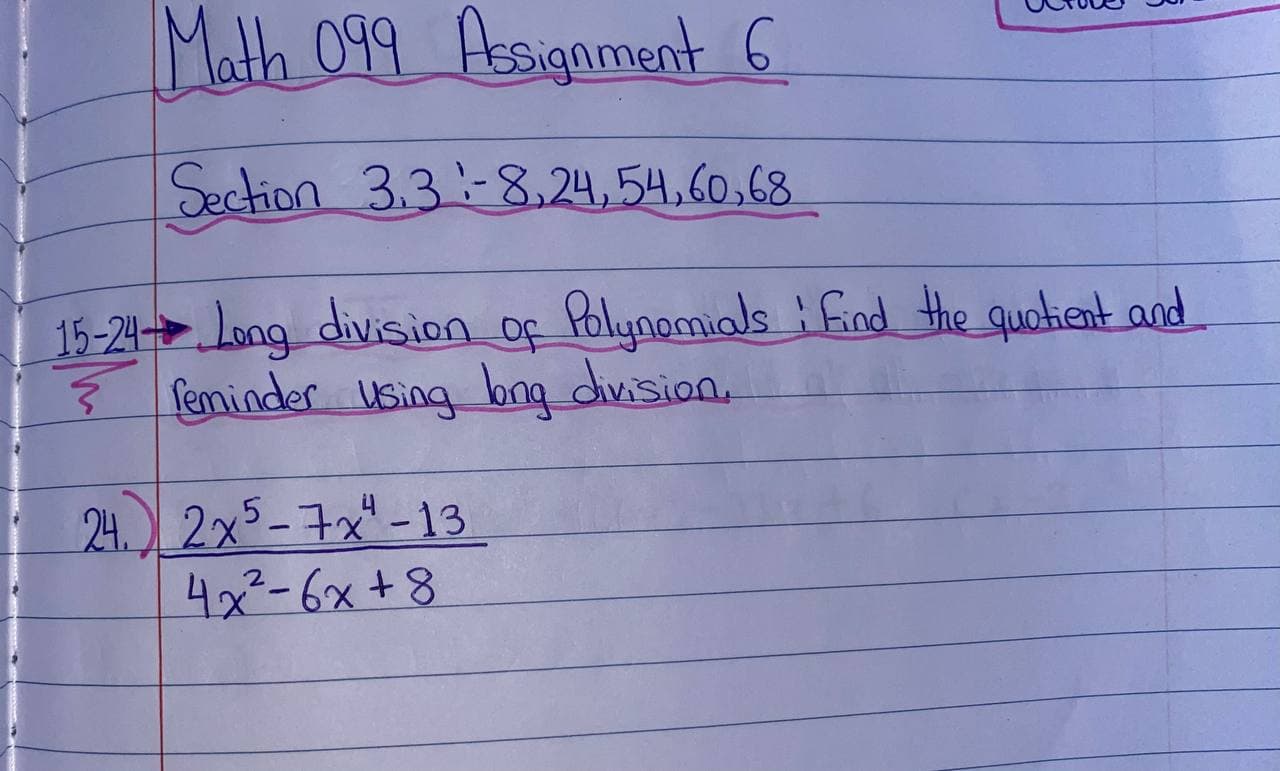 Math 099 Assignment 6
Section 3.3 :- 8, 24, 54, 60, 68
15-24 → Long division of Polynomials : Find the quotient and
reminder using long division.
24.) 2x⁵ - 7x⁴ - 13
4x² - 6x + 8